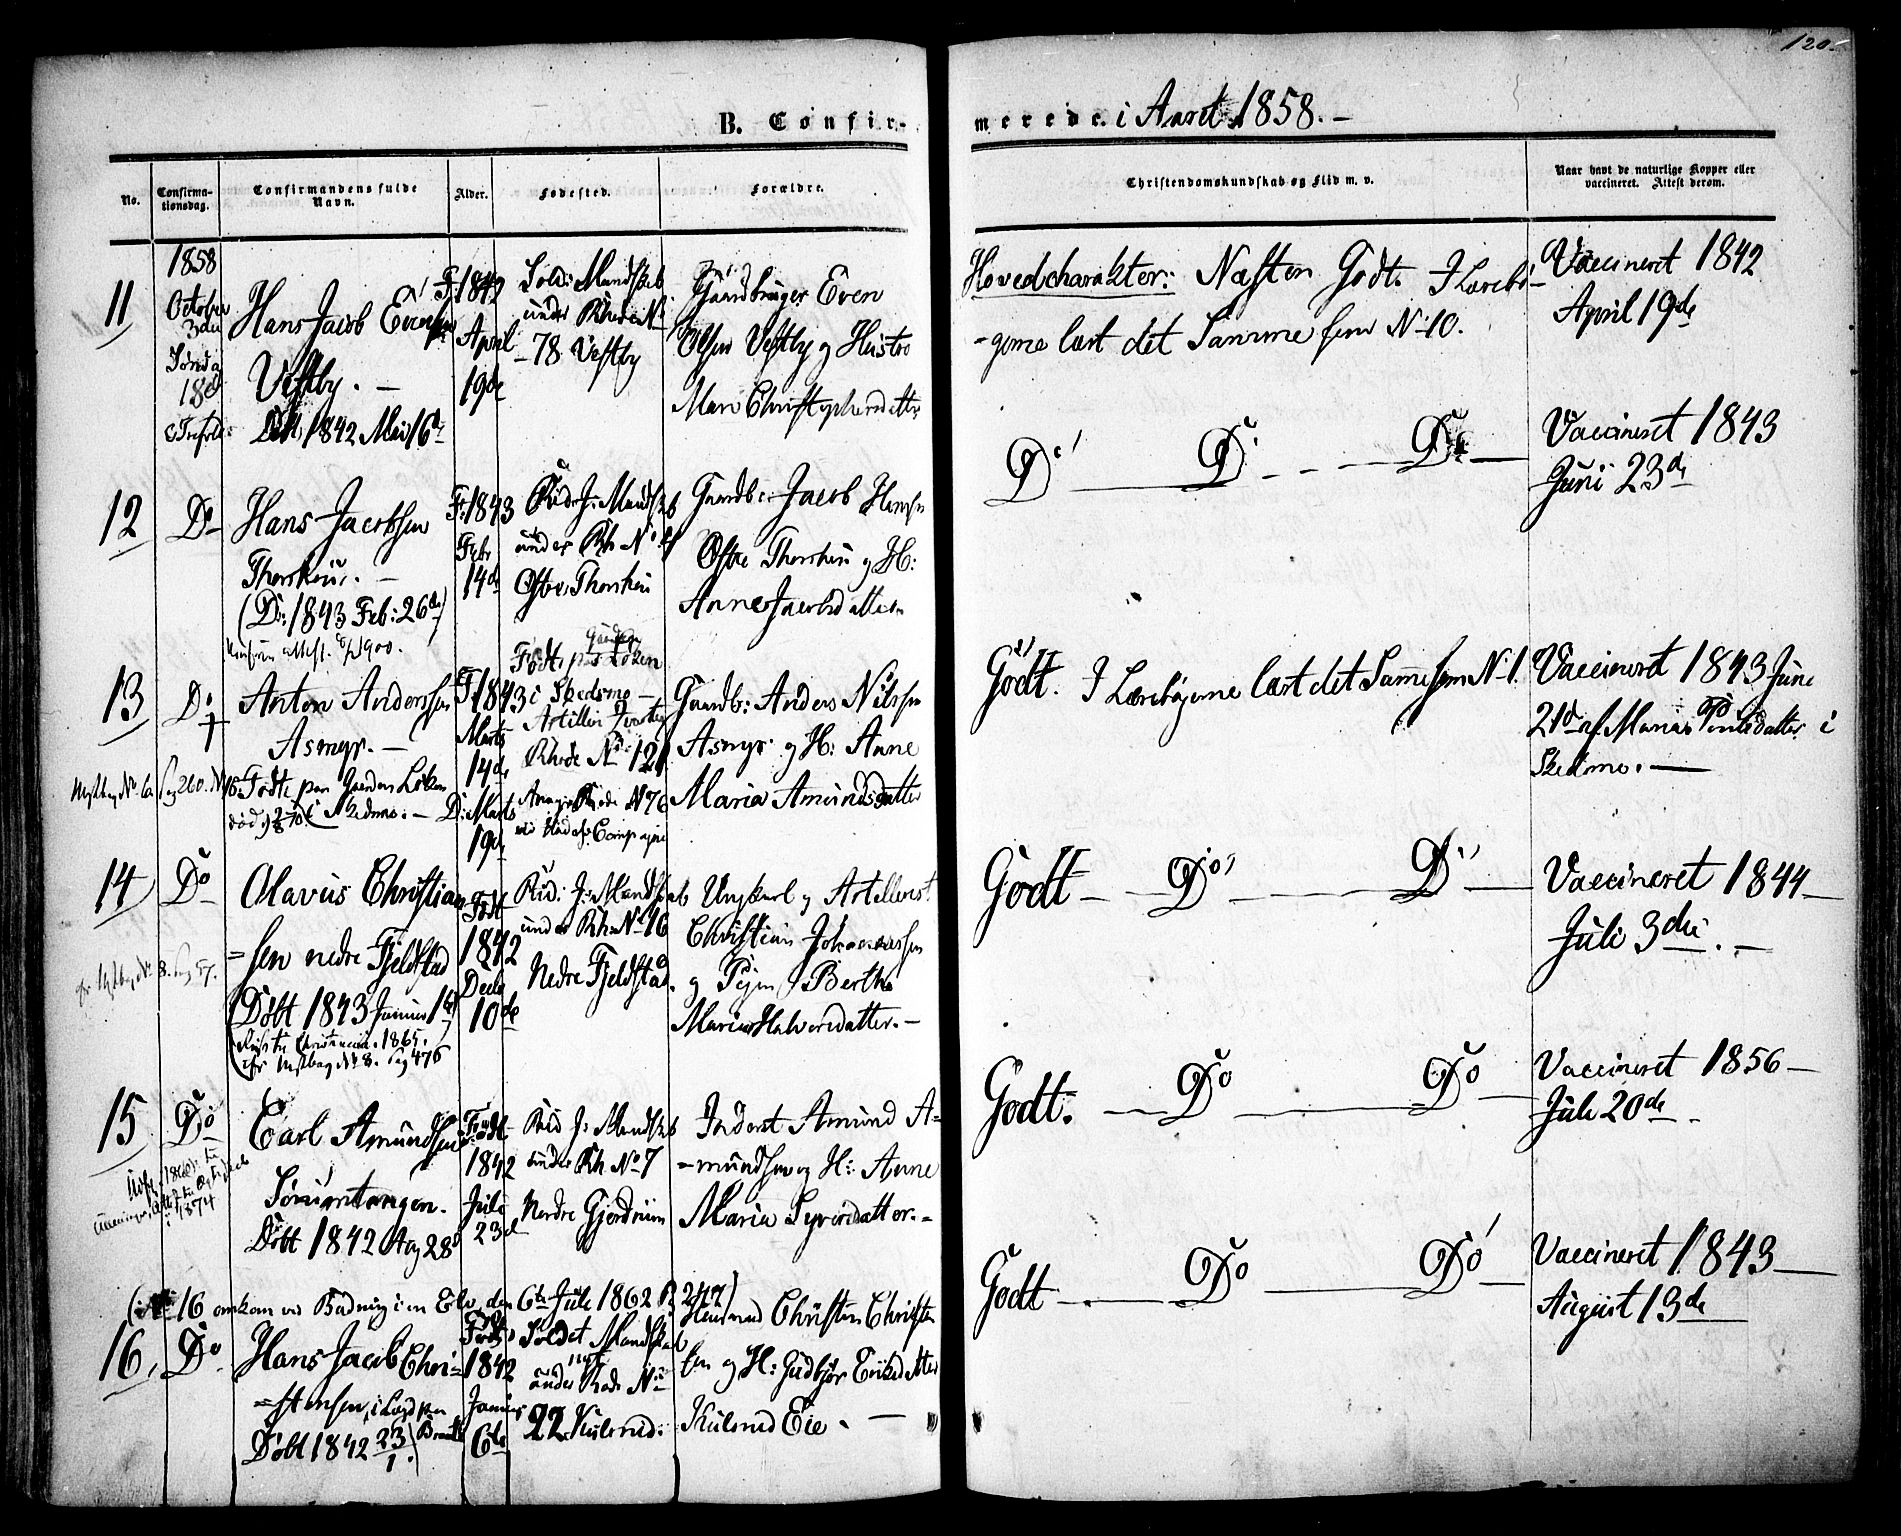 120.
B. Confirmerede. i Aaret 1858.
No.
Confirma-
tionsdag.
Confirmandens fulde
Navn.
Alder.
Fødested.
Forældre.
Christendomskundskab og Flid m. v.
Naar havt de naturlige Kopper eller
vaccineret. Attest derom.
11
1858
October
3die
Søndag
18de
Hans Jacob Evensen
Vestby. —
Døbt 1842 Mai 16de
F. 1842
April
19de
Sold: Mandskab
under Rhode No
- 78 Vestby
Gaardbruger Even
Olsen Vestby og Hustro
Mari Christophersdatter
Hovedcharakter: Næsten Godt. I Lærebø-
-gerne læst det Samme som No 10.
Vaccineret 1842
April 19de
12
Do
Hans Jacobsen
(D: 1843 Feb: 26de)
F. 1843
Febr
14de
Rud: J: Mandskab
under Rh No
Gaardb: Jacob Hansen
og H:
Anne Jacobsdatter
Do Do Do
Vaccineret 1843
Juni 23de
13
Do
Anton Anderssen
Asmyr. —
Født paa Gaarden Løken
i Skedsmo. —
F. 1843
Marts
14de
D: Marts
19de
Født paa Løken
i Skedsmo —
Rhode No 121
Gaardb: Anders Nilssen
Asmyr og H: Anne
Maria Amundsdatter
Godt. I Lærebøgerne læst det Samme som No 1.
Vaccineret 1843 June
21de af Maria i
Skedsmo. —
14
Do
Olavus Christian-
=sen nedre Fjeldstad
(Døbt 1843 Januar 1ste)
Christiania 1865.
Født
1842
Decbr
10de
Rud: J: Mandskab
under Rh: No 16
Nedre Fjeldstad.
Ungkarl og Artillerist
Christian Johannessen
og Pigen Berthe
Maria Halvorsdatter. —
Godt — Do Do
Vaccineret 1844 —
Juli 3die. —
15
Do
Carl Amundsen
Døbt 1842 Aug 28
Født
1842
Juli
23de
Rud J: Mandskab
under Rh. No 7
Nedre Gjerdrum
Inderst Amund A-
=mundsen og H: Anne
Maria Syversdatter. =
Godt. — Do — Do
Vaccineret 1856 —
Juli 20de
(No 16 omkom ved Badning i en Elv den 6te Juli 1862 P. 247)
16
Do
Hans Jacob Chri-
=stensen, i Lægd paa
Døbt 1842 23/1.
Født
1842
Januar
6te
Soldat Mandskab
under Rode No
22 Kulsrud.
Huusmand Christen Christen
sen og H: Gudbjør Eriksdatter
Kulsrud Eie. —
Godt — Do — Do
Vaccineret 1843 —
August 13de